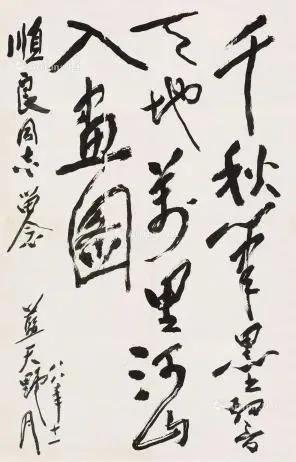 千秋笔墨惊
天地万里河山
入画图
順良同志留念
蓝天野
八八年十二月